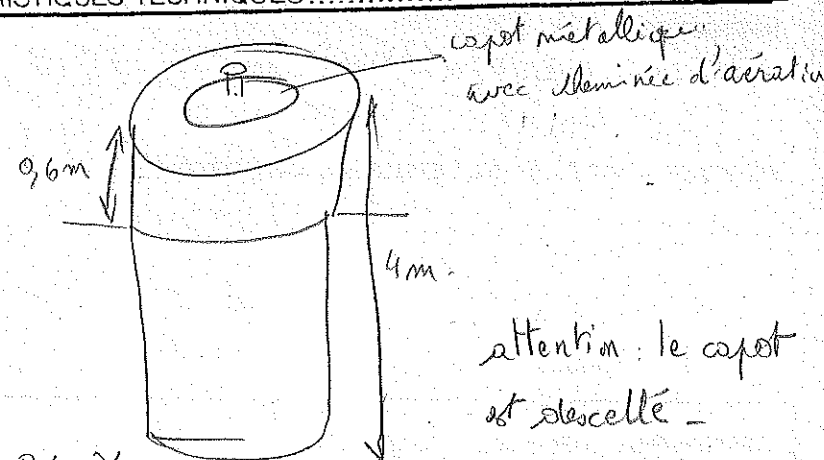 TECHNIQUES
capot métallique
avec cheminée d'aération
0,6m
4m.
attention : le capot
est descellé -